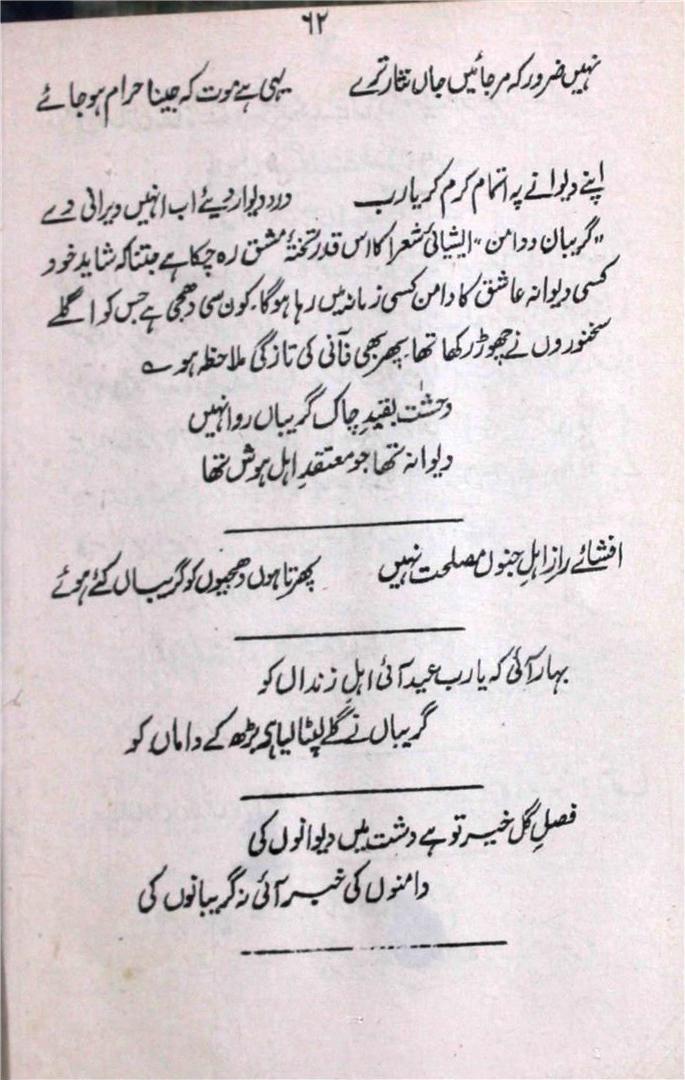 ۶۲
نہیں ضرور کہ مر جائیں جاں نثار ترے یہی ہے موت کہ جینا حرام ہو جائے
اپنے دیوانے پہ اتمام کرم کر یارب در و دیوار دیئے اب انہیں ویرانی دے
"گریبان و دامن" ایشیائی شعرا کا اس قدر تختۂ مشق رہ چکا ہے جتنا کہ شاید خود
کسی دیوانہ عاشق کا دامن کسی زمانہ میں رہا ہوگا۔ کون سی دھجی ہے جس کو اگلے
سخنوروں نے چھوڑ رکھا تھا۔ پھر بھی فانی کی تازگی ملاحظہ ہو ؎
وحشت بقید چاک گریباں روا نہیں
دیوانہ تھا جو معتقد اہل ہوش تھا
افشائے راز اہل جنوں مصلحت نہیں پھرتا ہوں دھجیوں کو گریباں کئے ہوئے
بہار آئی کہ یارب عید آئی اہل زنداں کو
گریباں نے گلے لپٹا لیا ہے بڑھ کے داماں کو
فصل گل خیر تو ہے دشت میں دیوانوں کی
دامنوں کی خبر آئی نہ گریبانوں کی